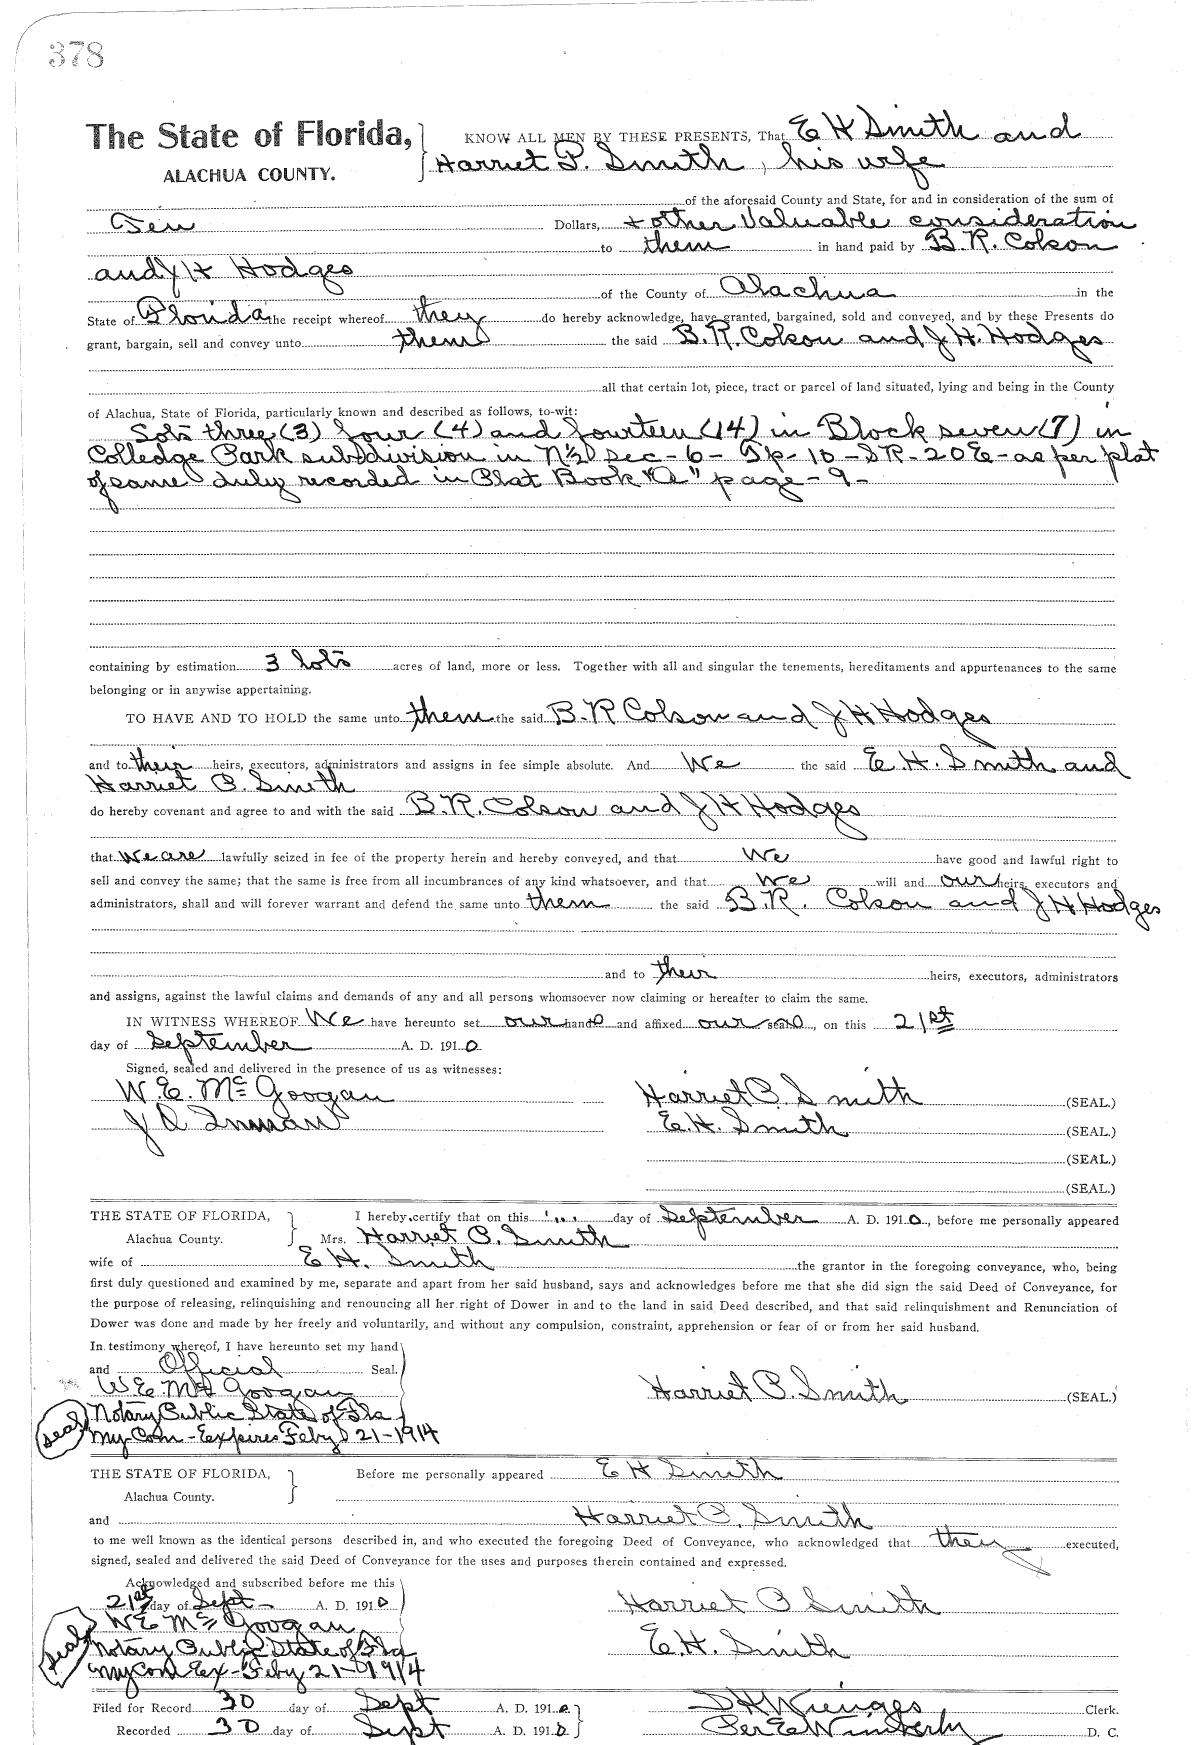 378
The State of Florida, KNOW ALL MEN BY THESE PRESENTS, That E H Smith and
ALACHUA COUNTY. Harriet P. Smith, his wife
of the aforesaid County and State, for and in consideration of the sum of
Ten Dollars, + other Valuable consideration
to them in hand paid by B. R. Colson
and J H Hodges
of the County of Alachua in the
State of Florida the receipt whereof they do hereby acknowledge, have granted, bargained, sold and conveyed, and by these Presents do
grant, bargain, sell and convey unto them the said B. R. Colson and J. H. Hodges
all that certain lot, piece, tract or parcel of land situated, lying and being in the County
of Alachua, State of Florida, particularly known and described as follows, to-wit:
Lots three (3) four (4) and fourteen (14) in Block seven (7) in
Colledge Park subdivision in N½ Sec - 6 - Tp - 10 - S R - 20 E - as per plat
of same duly recorded in Plat Book "A" page - 9 -
containing by estimation 3 lots acres of land, more or less. Together with all and singular the tenements, hereditaments and appurtenances to the same
belonging or in anywise appertaining.
TO HAVE AND TO HOLD the same unto them the said B. R Colson and J H Hodges
and to their heirs, executors, administrators and assigns in fee simple absolute. And We the said E. H. Smith and
Harriet P. Smith
do hereby covenant and agree to and with the said B. R. Colson and J H Hodges
that We are lawfully seized in fee of the property herein and hereby conveyed, and that We have good and lawful right to
sell and convey the same; that the same is free from all incumbrances of any kind whatsoever, and that We will and our heirs, executors and
administrators, shall and will forever warrant and defend the same unto them the said B. R. Colson and J H Hodges
and to their heirs, executors, administrators
and assigns, against the lawful claims and demands of any and all persons whomsoever now claiming or hereafter to claim the same.
IN WITNESS WHEREOF We have hereunto set our hands and affixed our seals, on this 21st
day of September A. D. 1910
Signed, sealed and delivered in the presence of us as witnesses:
W. E. McGoogan Harriet P. Smith (SEAL.)
J D Inman E. H. Smith (SEAL.)
(SEAL.)
(SEAL.)
THE STATE OF FLORIDA, I hereby certify that on this day of September A. D. 1910, before me personally appeared
Alachua County. Mrs. Harriet P. Smith
wife of E H. Smith the grantor in the foregoing conveyance, who, being
first duly questioned and examined by me, separate and apart from her said husband, says and acknowledges before me that she did sign the said Deed of Conveyance, for
the purpose of releasing, relinquishing and renouncing all her right of Dower in and to the land in said Deed described, and that said relinquishment and Renunciation of
Dower was done and made by her freely and voluntarily, and without any compulsion, constraint, apprehension or fear of or from her said husband.
In testimony whereof, I have hereunto set my hand
and Official Seal.
W E McGoogan Harriet P. Smith (SEAL.)
Seal Notary Public State of Fla
My Com - Expires Feby 21 - 1914
THE STATE OF FLORIDA, Before me personally appeared E H Smith
Alachua County.
and Harriet P. Smith
to me well known as the identical persons described in, and who executed the foregoing Deed of Conveyance, who acknowledged that they executed,
signed, sealed and delivered the said Deed of Conveyance for the uses and purposes therein contained and expressed.
Acknowledged and subscribed before me this
21st day of Sept - A. D. 1910 Harriet P Smith
W E McGoogan
Seal Notary Public State of Fla E. H. Smith
My Com Ex - Feby 21 - 1914
Filed for Record 30 day of Sept A. D. 1910 Clerk.
Recorded 30 day of Sept A. D. 1910 Per E Wimberly D. C.